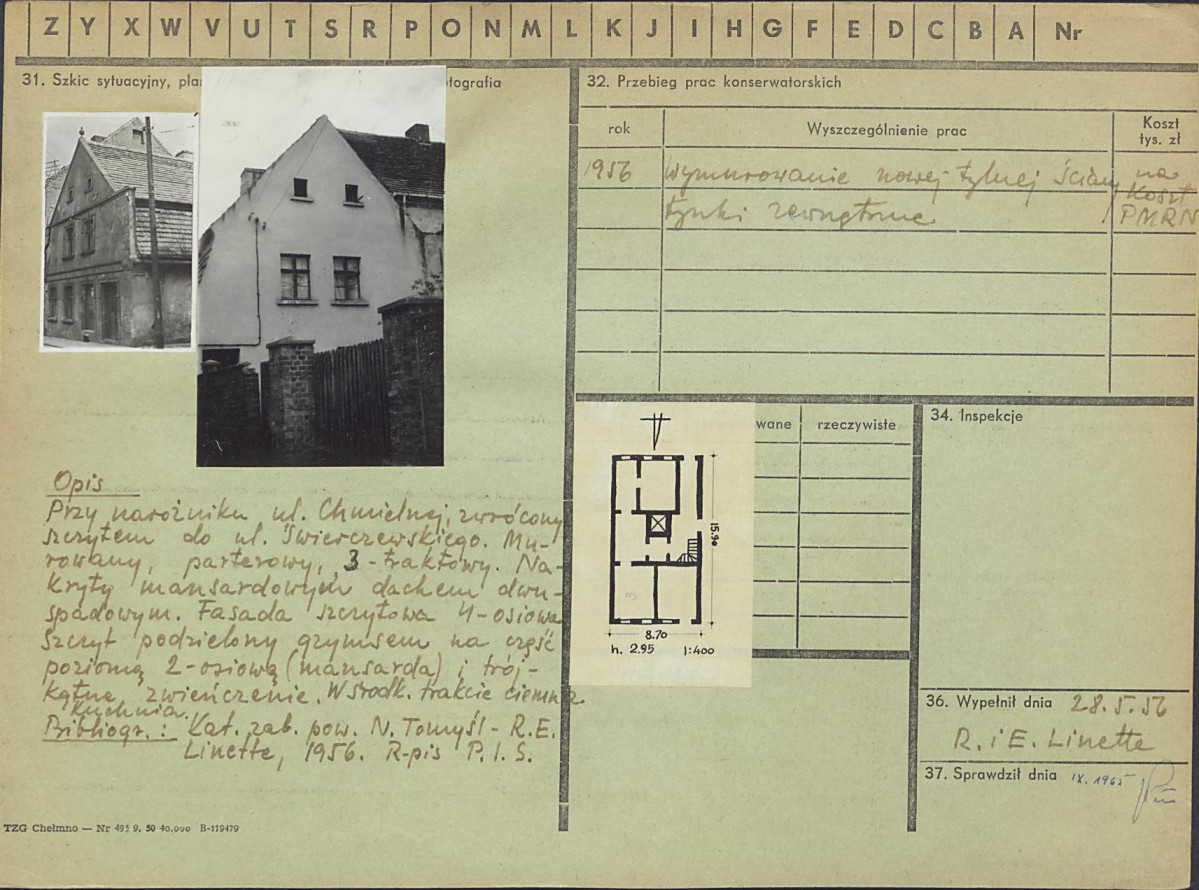 Z Y X W V U T S R P O N M L K J I H G F E D C B A Nr
31. Szkic sytuacyjny, pla
tografia
Opis
Przy narożniku ul. Chmielnej, zwrócony
szczytem do ul. Świerczewskiego. Mu-
rowany, parterowy, 3-traktowy. Na-
kryty mansardowym dachem dwu-
spadowym. Fasada szczytowa 4-osiowa
Szczyt podzielony gzymsem na część
poziomą 2-osiową (mansarda) i trój-
kątne zwieńczenie. W środk. trakcie ciemna
kuchnia.
Bibliogr.: Kat. zab. pow. N. Tomyśl - R.E.
Linette, 1956. R-pis P.I.S.
TZG Chełmno — Nr 495 9. 50 40.000 B-119479
32. Przebieg prac konserwatorskich
rok
Wyszczególnienie prac
Koszt
tys. zł
1956 Wymurowanie nowej tylnej ściany na
koszt
tynki zewnętrzne PMRN
wane rzeczywiste
15.90
8.70
h. 2.95 1:400
3
34. Inspekcje
36. Wypełnił dnia 28.5.56
R. i E. Linette
37. Sprawdził dnia IX. 1965